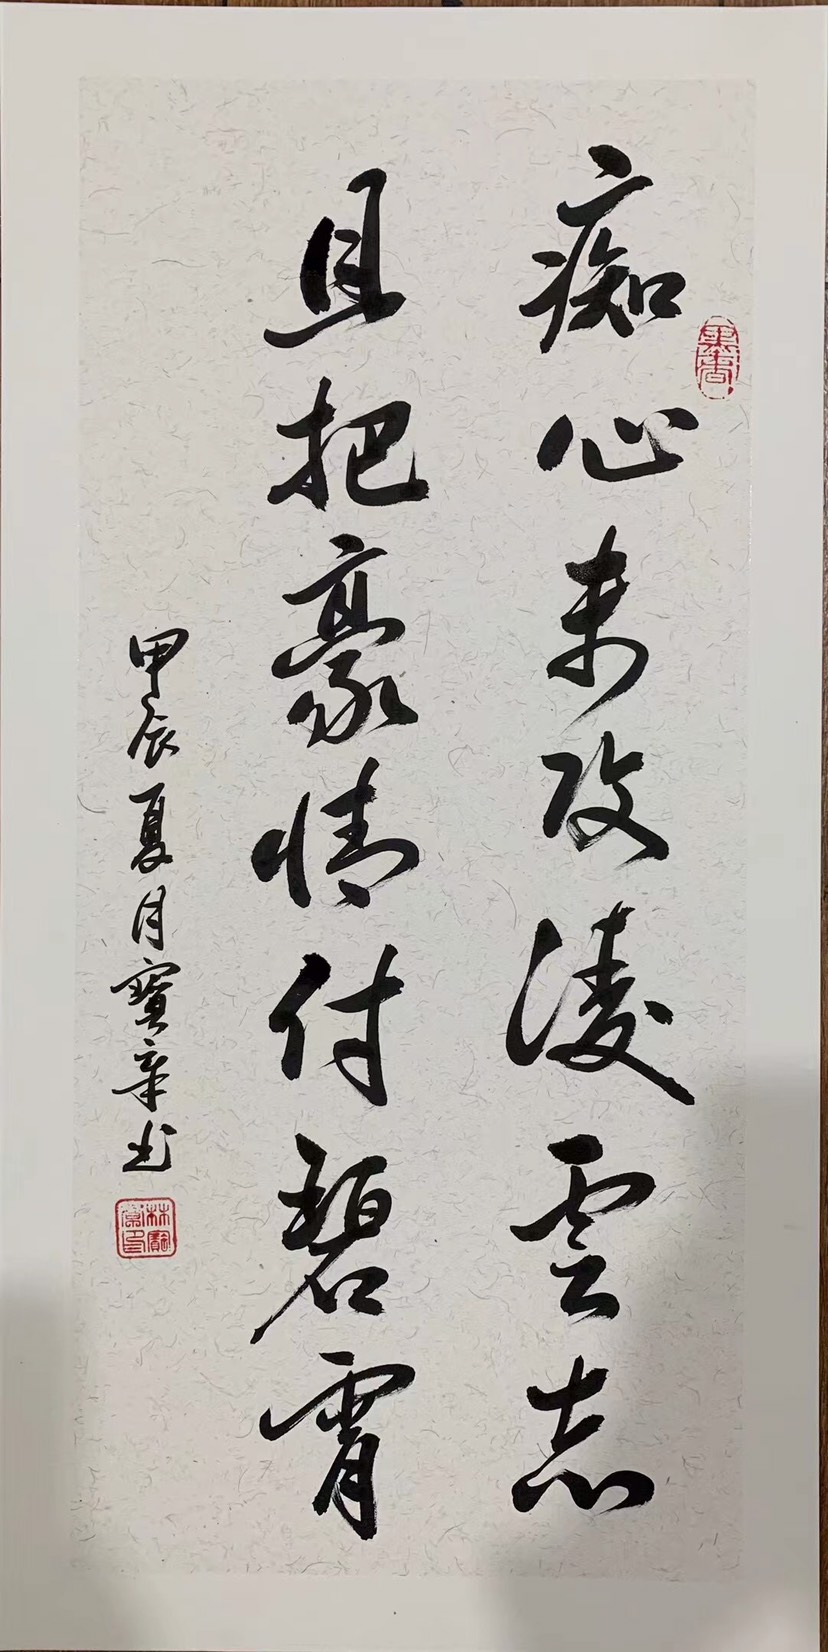 痴心未改凌雲志
且把豪情付碧霄
甲辰夏月寶章书